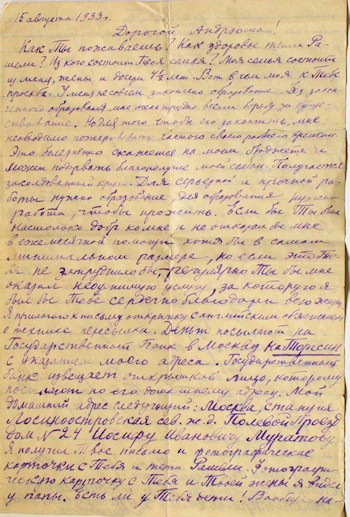 15 августа 1933 г.
Дорогой Андрюша!
Как Ты поживаешь? Как здоровье тети Ра-
шели? Из кого состоит Твоя семья? Моя семья состоит
из меня, жены и дочери. Вот в чем моя к Тебе
просьба. У меня не совсем закончено образование. Для закон-
ченного образования, мне очень трудно
необходимо пожертвовать частью своего рабочего времени
Это болезненно скажется на моем бюджете и
может подорвать благополучие моей семьи. Получается
заколдованный круг. Для серьезной и прочной ра-
боты нужно образование, для образования нужна
работа, чтобы прожить. Если бы Ты был
настолько добр ко мне и не отказал бы мне
в ежемесячной помощи хотя бы в самом
минимальном размере, но если это Те-
бя не затруднило бы, регулярно Ты бы мне
оказал неоценимую услугу, за которую я
был бы Тебе сердечно благодарен всю жизнь.
Я прилагаю к письму открытку с английским объяснением
о технике пересылки. Деньги посылают на
Государственный Банк в Москву на Торгсин
с указанием моего адреса. Государственный
Банк извещает открыткой лицо, которому
по его домашнему адресу. Мой
домашний адрес следующий: Москва, станция
Лосиноостровская сев. ж.д. Полевой Проезд
дом № 24 Иосифу Ивановичу Муратову.
Я получил Твое письмо и фотографические
карточки с Тебя и тети Рашели. Фотографи-
ческую карточку с Тебя и Твоей жены я видел
у папы. Есть ли у Тебя дети? Вообще на-